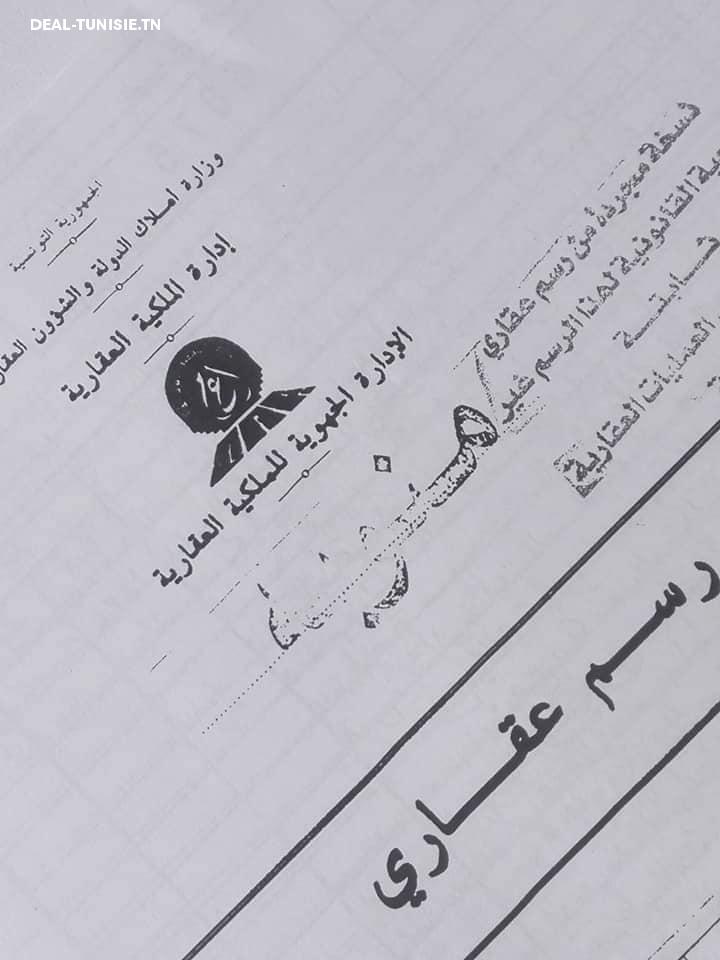 DEAL-TUNISIE.TN
الجمهورية التونسية
وزارة املاك الدولة والشؤون
إدارة الملكية العقارية
الإدارة الجهوية للملكية العقارية
نسخة مجردة من رسم عقاري
القانونية لهذا الرسم غير
ثابتة
العمليات العقارية
رسم عقاري